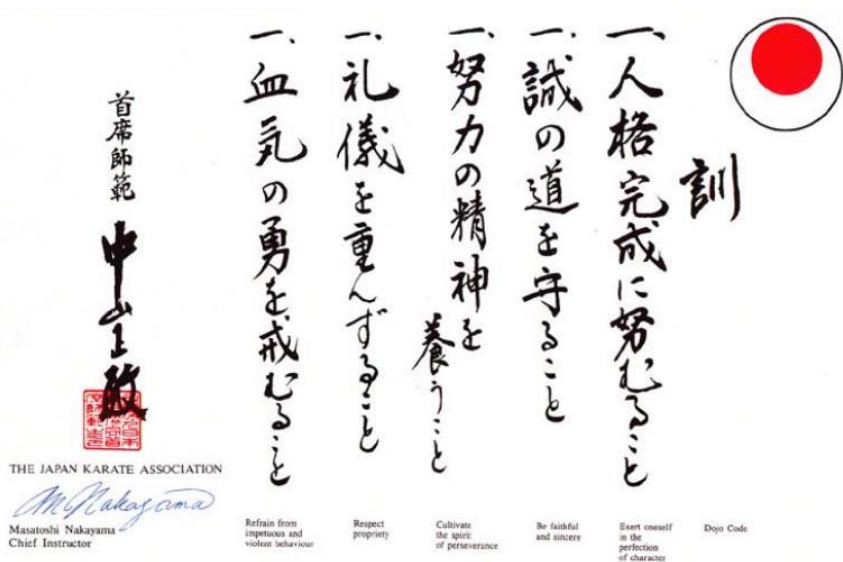 訓
一、人格完成に努むること
一、誠の道を守ること
一、努力の精神を
養うこと
一、礼儀を重んずること
一、血気の勇を、戒むること
首席師範
中山正敏
THE JAPAN KARATE ASSOCIATION
M. Nakayama
Masatoshi Nakayama
Chief Instructor
Refrain from
impetuous and
violent behaviour
Respect
propriety
Cultivate
the spirit
of perseverance
Be faithful
and sincere
Exert oneself
in the
perfection
of character
Dojo Code